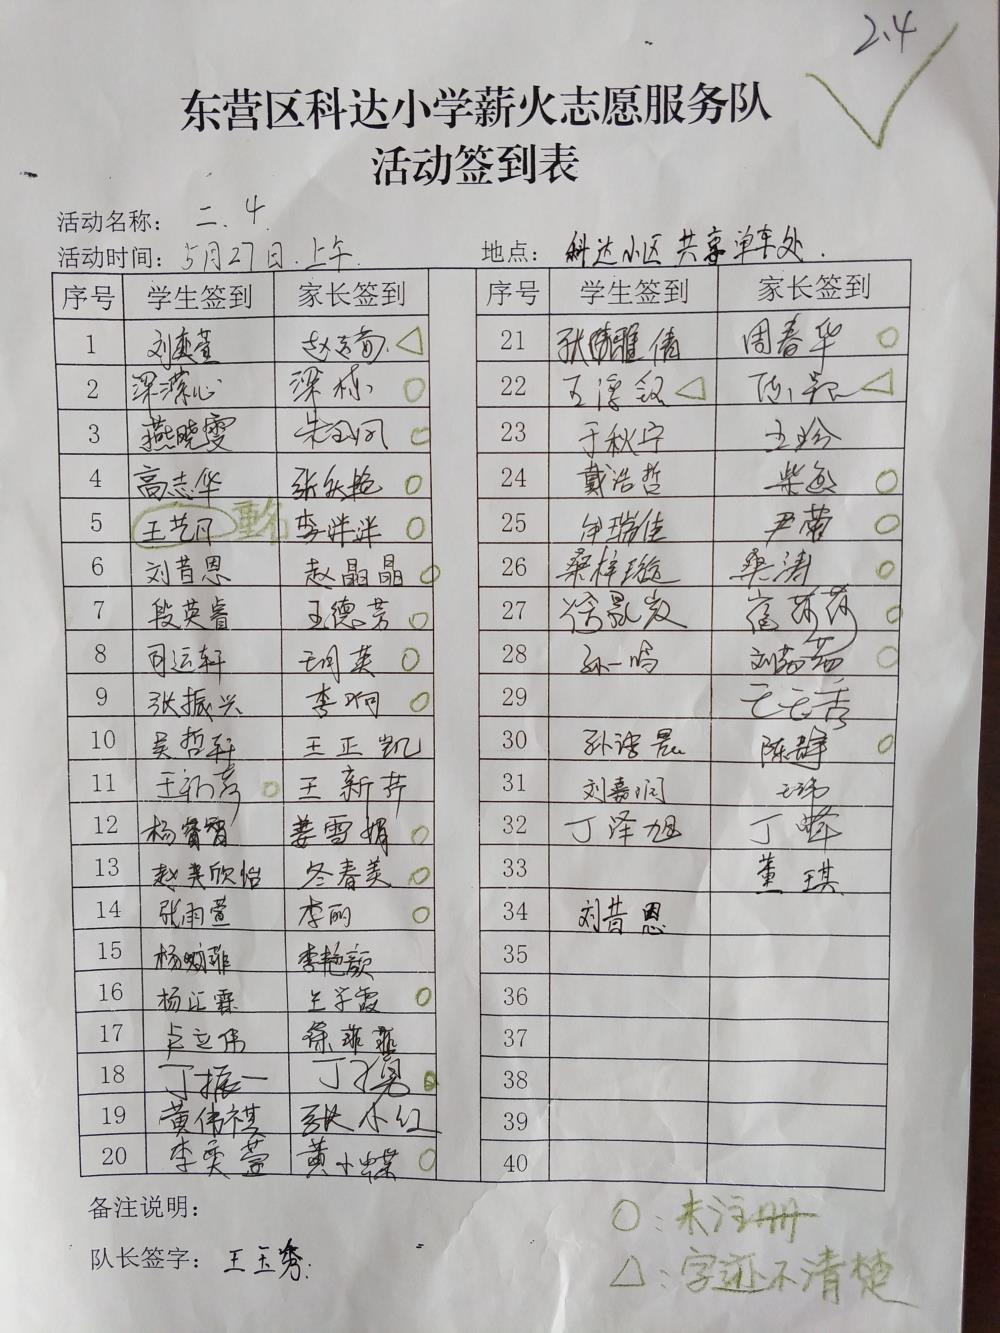 2.4
东营区科达小学薪火志愿服务队
活动签到表
活动名称： 二.4
活动时间：5月27日.上午. 地点： 科达小区共享单车处.
序号 学生签到 家长签到 序号 学生签到 家长签到
1 刘奕萱 △ 21 周春华 ○
2 梁 ○ 22 王 △ △
3 燕晓雯 ○ 23 于秋宁 王玲
4 高志华 张 艳 ○ 24 戴浩哲 柴 ○
5 王艺凡 重名 李洋洋 ○ 25 尹瑞佳 尹蕾 ○
6 刘昔恩 赵晶晶 ○ 26 桑梓璇 桑涛 ○
7 段英睿 王德芳 ○ 27 徐 莎莎 ○
8 司运轩 英 ○ 28 孙一鸣 刘 ○
9 张振兴 李 ○ 29 王玉秀
10 吴哲轩 王正凯 30 孙 陈静 ○
11 王 ○ 王新芹 31 刘嘉润 王玮
12 杨 姜雪娟 ○ 32 丁泽旭 丁峰
13 赵美欣怡 冬春美 ○ 33 董琪
14 张雨萱 李丽 ○ 34 刘昔恩
15 杨 菲 李艳颜 35
16 杨 霖 兰学霞 ○ 36
17 卢立伟 徐菲菲 37
18 丁振一 丁 勇 ○ 38
19 黄伟祺 张小红 39
20 李奕萱 黄小蝶 ○ 40
备注说明：
○：未注册
队长签字： 王玉秀.
△：字迹不清楚